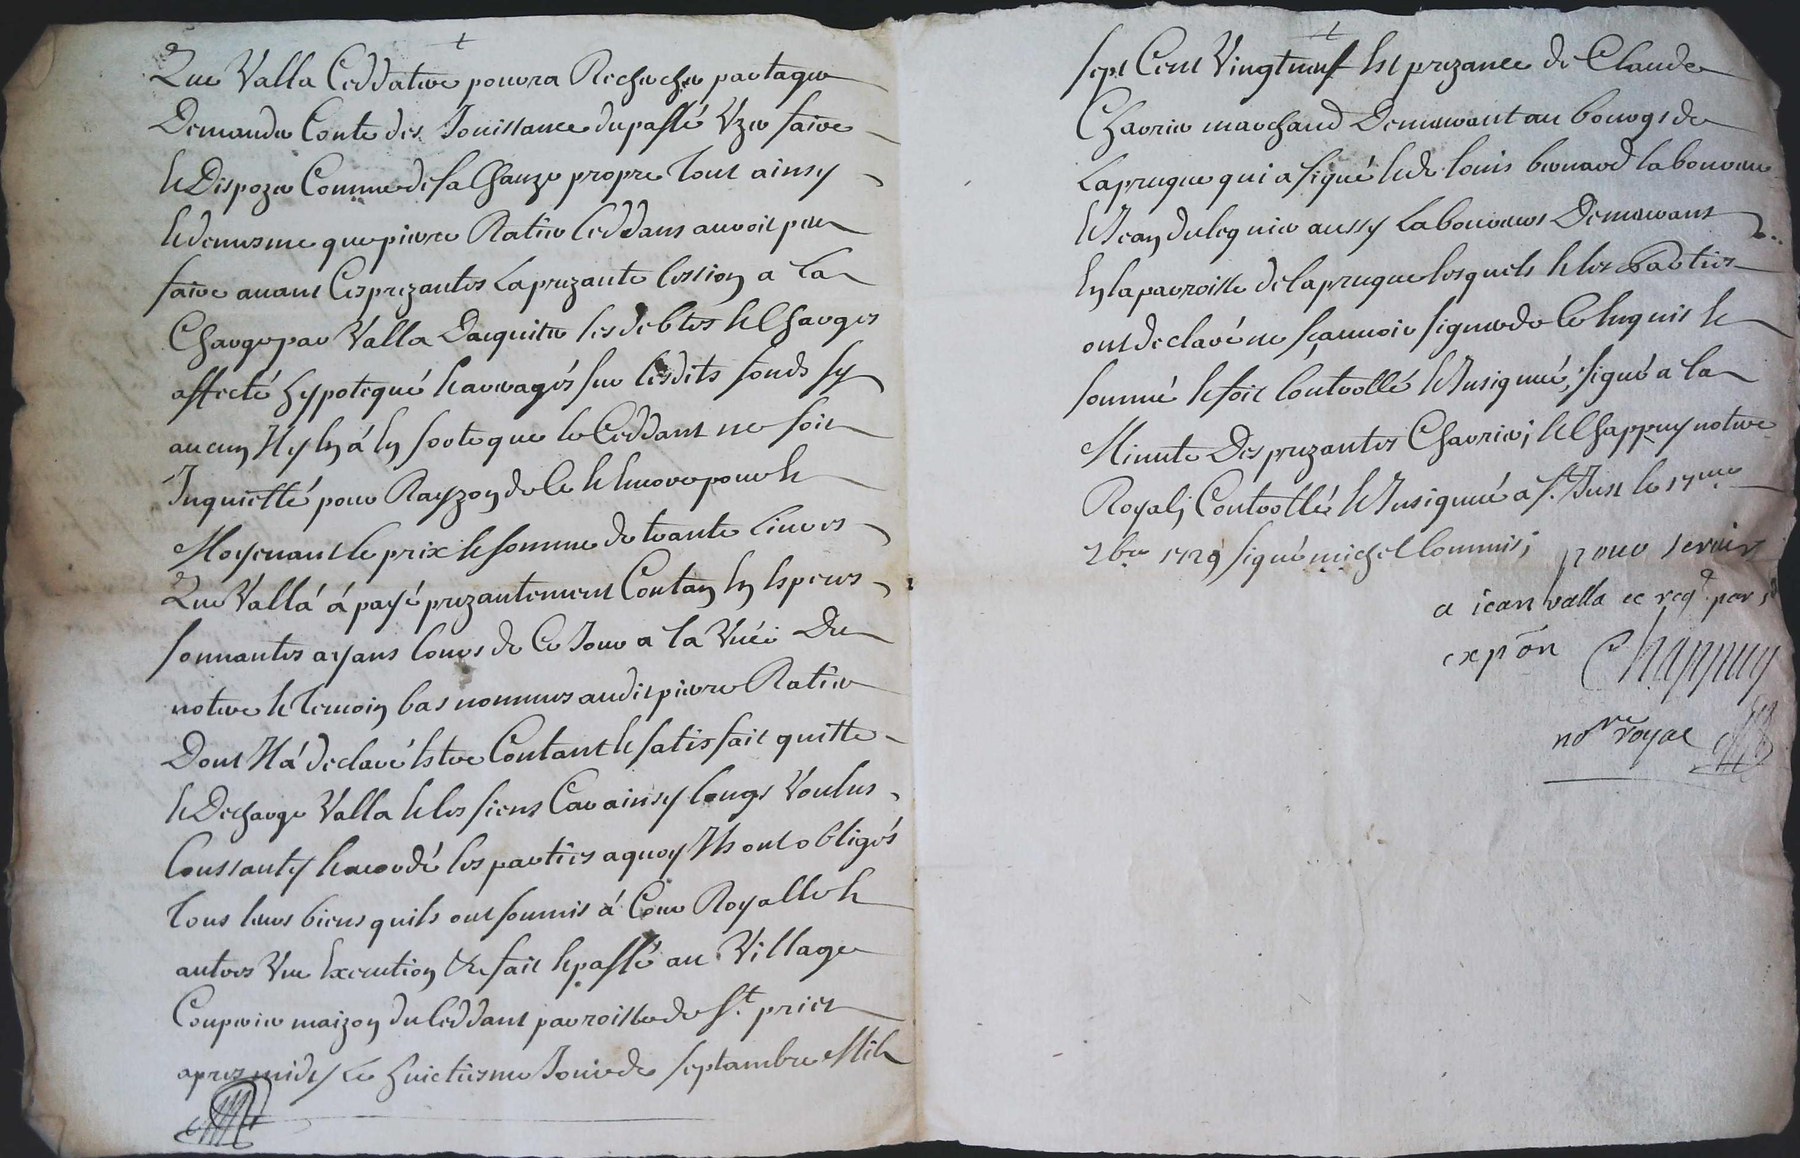 Que Valla Ceddatere pouvra Rechercher partager
Demander Conte des Jouissance du passé Uzer faire
et Dispozer Comme de sa Chauze propre tout ainsy
et de mesme que pierre Ratier Ceddant auroit peu
faire avant Ces prezantes La prezante Cession a La
Charge par Valla Dacquiter les debtes et Charges
affecté hypotequé et arreragés sur lesdits fonds sy
aucun Il y en á en sorte que le Ceddant ne soit
Inquietté pour Rayzon de Ce et Encore pour et
Moyenant le prix et somme de trante Livres
Que Valla á payé prezantement Contan En Espers
sonnantes ayans Cours de Ce Jour a la Vuée Du
notere et temoin bas nommes audit pierre Ratier
Dont Il á declaré Estre Contant et satisfait quitte
et Decharge Valla et les siens Car ainsy Congs Voulus
Conssanty et acordé les parties a quoy Ils ont obligés
tous leurs biens quils ont soumis á Cour Royalle et
autres Vue Execution &c fait et passé au Village
Couperier maizon du Ceddant parroisse de St. priet
apres midy Le huictiesme Jour de Septambre Mil
sept Cent Vingt neuf En prezance de Claude
Charrier marchand Demeurant au bourgs de
Laprugne qui a signé et de louis bernard laboureur
et Jean dulegnier aussy Laboureurs Demeurant
En la parroisse de laprugne lesquels et les Parties
ont declaré ne sçauvoir signer de Ce Enquis et
sommé et soit Controllé et Insignué, signé a la
Minute Des prezantes Charrier; et Chappuy notere
Royal; Controllé et Insignué a St. Just le 17me
7bre 1729 signé michel Commis; pour servir
a jean valla ce reqt par
expõn Chappuy
nore royal